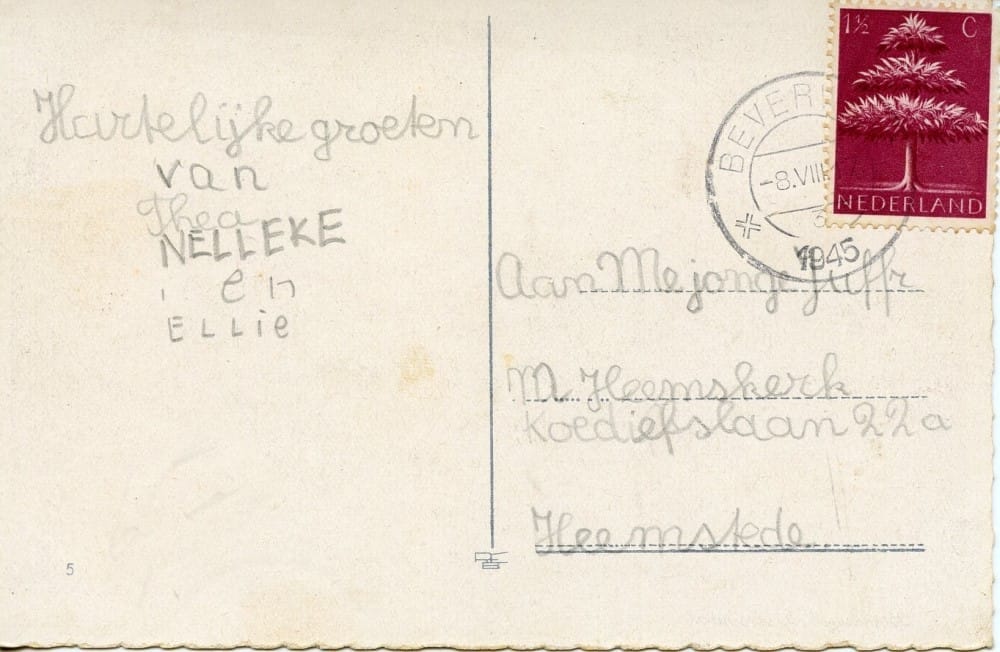 Hartelijke groeten
van
Thea
NELLEKE
en
ELLie
5
1½ C
NEDERLAND
BEVER
-8.VIII
1945
Aan Mejongejuffr
M Heemskerk
Koediefslaan 22a
Heemstede.